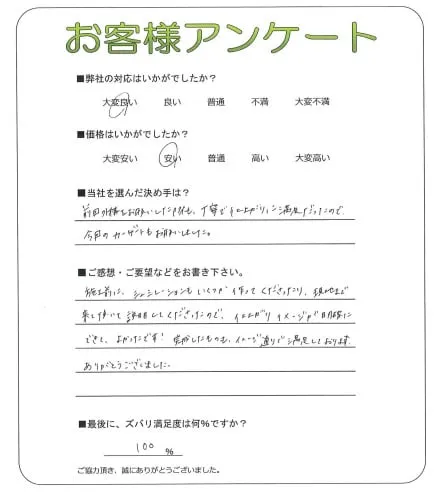 お客様アンケート
■弊社の対応はいかがでしたか?
大変良い 良い 普通 不満 大変不満
■価格はいかがでしたか?
大変安い 安い 普通 高い 大変高い
■当社を選んだ決め手は?
前回外構をお願いした時も、丁寧で仕上がりに満足だったので
今回のカーポートもお願いしました。
■ご感想・ご要望などをお書き下さい。
施工前に、シュミレーションもいくつか作ってくださったり、現地まで
来て頂いて説明してくださったので、仕上がりイメージが明確に
できて、よかったです! 完成したものも、イメージ通りで満足しております
ありがとうございました。
■最後に、ズバリ満足度は何%ですか?
100 %
ご協力頂き、誠にありがとうございました。